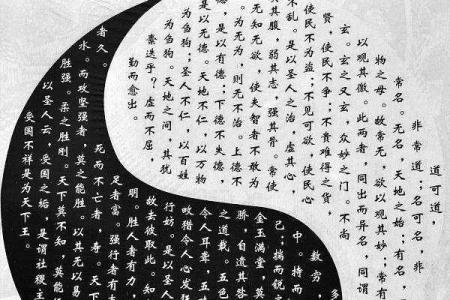 道可道，
非常道；名可名，非
常名。无名，天地之始；有名，
物之母。故常无，欲以观其妙；常有
以观其徼。此两者，同出而异名，同谓
玄。玄之又玄，众妙之门。不尚
贤，使民不争；不贵难得之货，
使民不为盗；不见可欲，使民心
不乱。是以圣人之治，虚其心，
其腹，弱其志，强其骨。常使
无知无欲，使夫智者不敢为
。为无为，则无不治。上德不
是以有德；下德不失德，
是以无德。天地不仁，以万物
为刍狗。圣人不仁，以百姓
为刍狗。天地之间，其犹
乎？虚而不屈，
勤而愈出。
数穷
中。持而
己；揣而锐
金玉满堂，莫
骄，自遗其咎
之道载。五色
令人耳聋，五
猎令人心发
行妨。是以圣
故去彼取此。知
明。胜人者有力
足者富。强行者有
死而不亡者，寿。天下
者久。
水。而攻坚强者，莫之能胜。以其无以易
胜强。柔之胜刚。天下莫不知，莫能
以圣人云，受国之垢，是谓社稷主
受国不祥是为天下王。